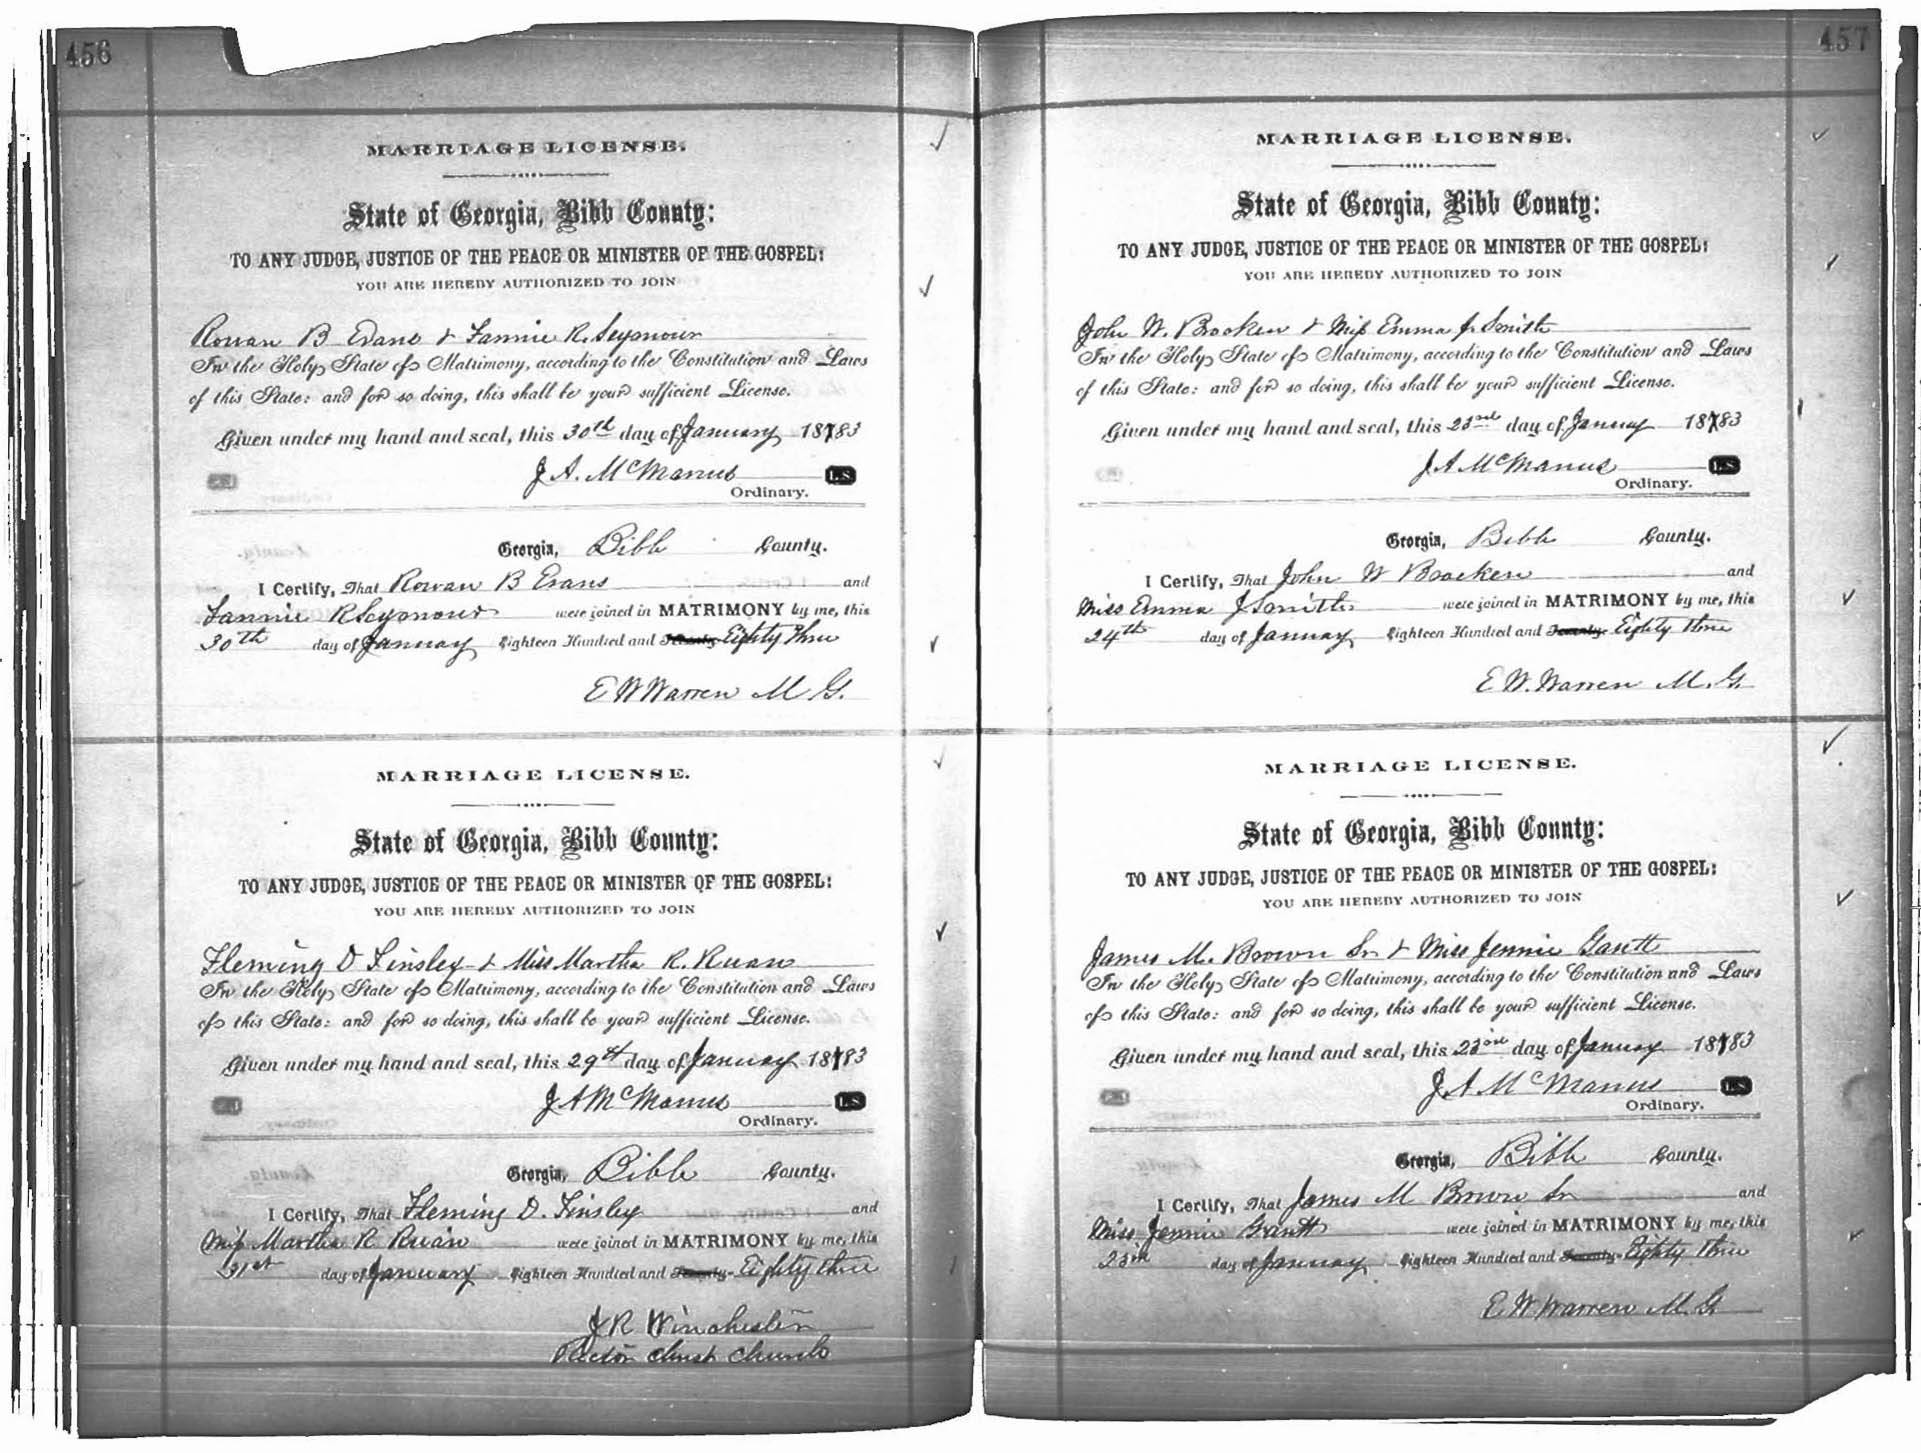 456
MARRIAGE LICENSE.
State of Georgia, Bibb County:
TO ANY JUDGE, JUSTICE OF THE PEACE OR MINISTER OF THE GOSPEL:
YOU ARE HEREBY AUTHORIZED TO JOIN
Rowan B Evans & Fannie R. Seymour
In the Holy State of Matrimony, according to the Constitution and Laws
of this State: and for so doing, this shall be your sufficient License.
Given under my hand and seal, this 30th day of January 1883
J A. McManus L.S.
Ordinary.
Georgia, Bibb County.
I Certify, That Rowan B Evans and
Fannie R Seymour were joined in MATRIMONY by me, this
30th day of January Eighteen Hundred and Seventy- Eighty three
E W Warren M G.
MARRIAGE LICENSE.
State of Georgia, Bibb County:
TO ANY JUDGE, JUSTICE OF THE PEACE OR MINISTER OF THE GOSPEL:
YOU ARE HEREBY AUTHORIZED TO JOIN
Fleming D Tinsley & Miss Martha R. Ruan
In the Holy State of Matrimony, according to the Constitution and Laws
of this State: and for so doing, this shall be your sufficient License.
Given under my hand and seal, this 29th day of January 1883
J A McManus L.S.
Ordinary.
Georgia, Bibb County.
I Certify, That Fleming D. Tinsley and
Miss Martha R Ruan were joined in MATRIMONY by me, this
31st day of January Eighteen Hundred and Seventy- Eighty three
J R Winchester
Rector Christ Church
457
MARRIAGE LICENSE.
State of Georgia, Bibb County:
TO ANY JUDGE, JUSTICE OF THE PEACE OR MINISTER OF THE GOSPEL:
YOU ARE HEREBY AUTHORIZED TO JOIN
John W. Bracken & Miss Emma J. Smith
In the Holy State of Matrimony, according to the Constitution and Laws
of this State: and for so doing, this shall be your sufficient License.
Given under my hand and seal, this 23rd day of January 1883
J A McManus L.S.
Ordinary.
Georgia, Bibb County.
I Certify, That John W Bracken and
Miss Emma J Smith were joined in MATRIMONY by me, this
24th day of January Eighteen Hundred and Seventy- Eighty three
E. W. Warren M. G.
MARRIAGE LICENSE.
State of Georgia, Bibb County:
TO ANY JUDGE, JUSTICE OF THE PEACE OR MINISTER OF THE GOSPEL:
YOU ARE HEREBY AUTHORIZED TO JOIN
James M. Brown Sr & Miss Jennie
In the Holy State of Matrimony, according to the Constitution and Laws
of this State: and for so doing, this shall be your sufficient License.
Given under my hand and seal, this 23rd day of January 1883
J A McManus L.S.
Ordinary.
Georgia, Bibb County.
I Certify, That James M Brown Sr and
Miss Jennie were joined in MATRIMONY by me, this
23rd day of January Eighteen Hundred and Seventy- Eighty three
E W Warren M. G